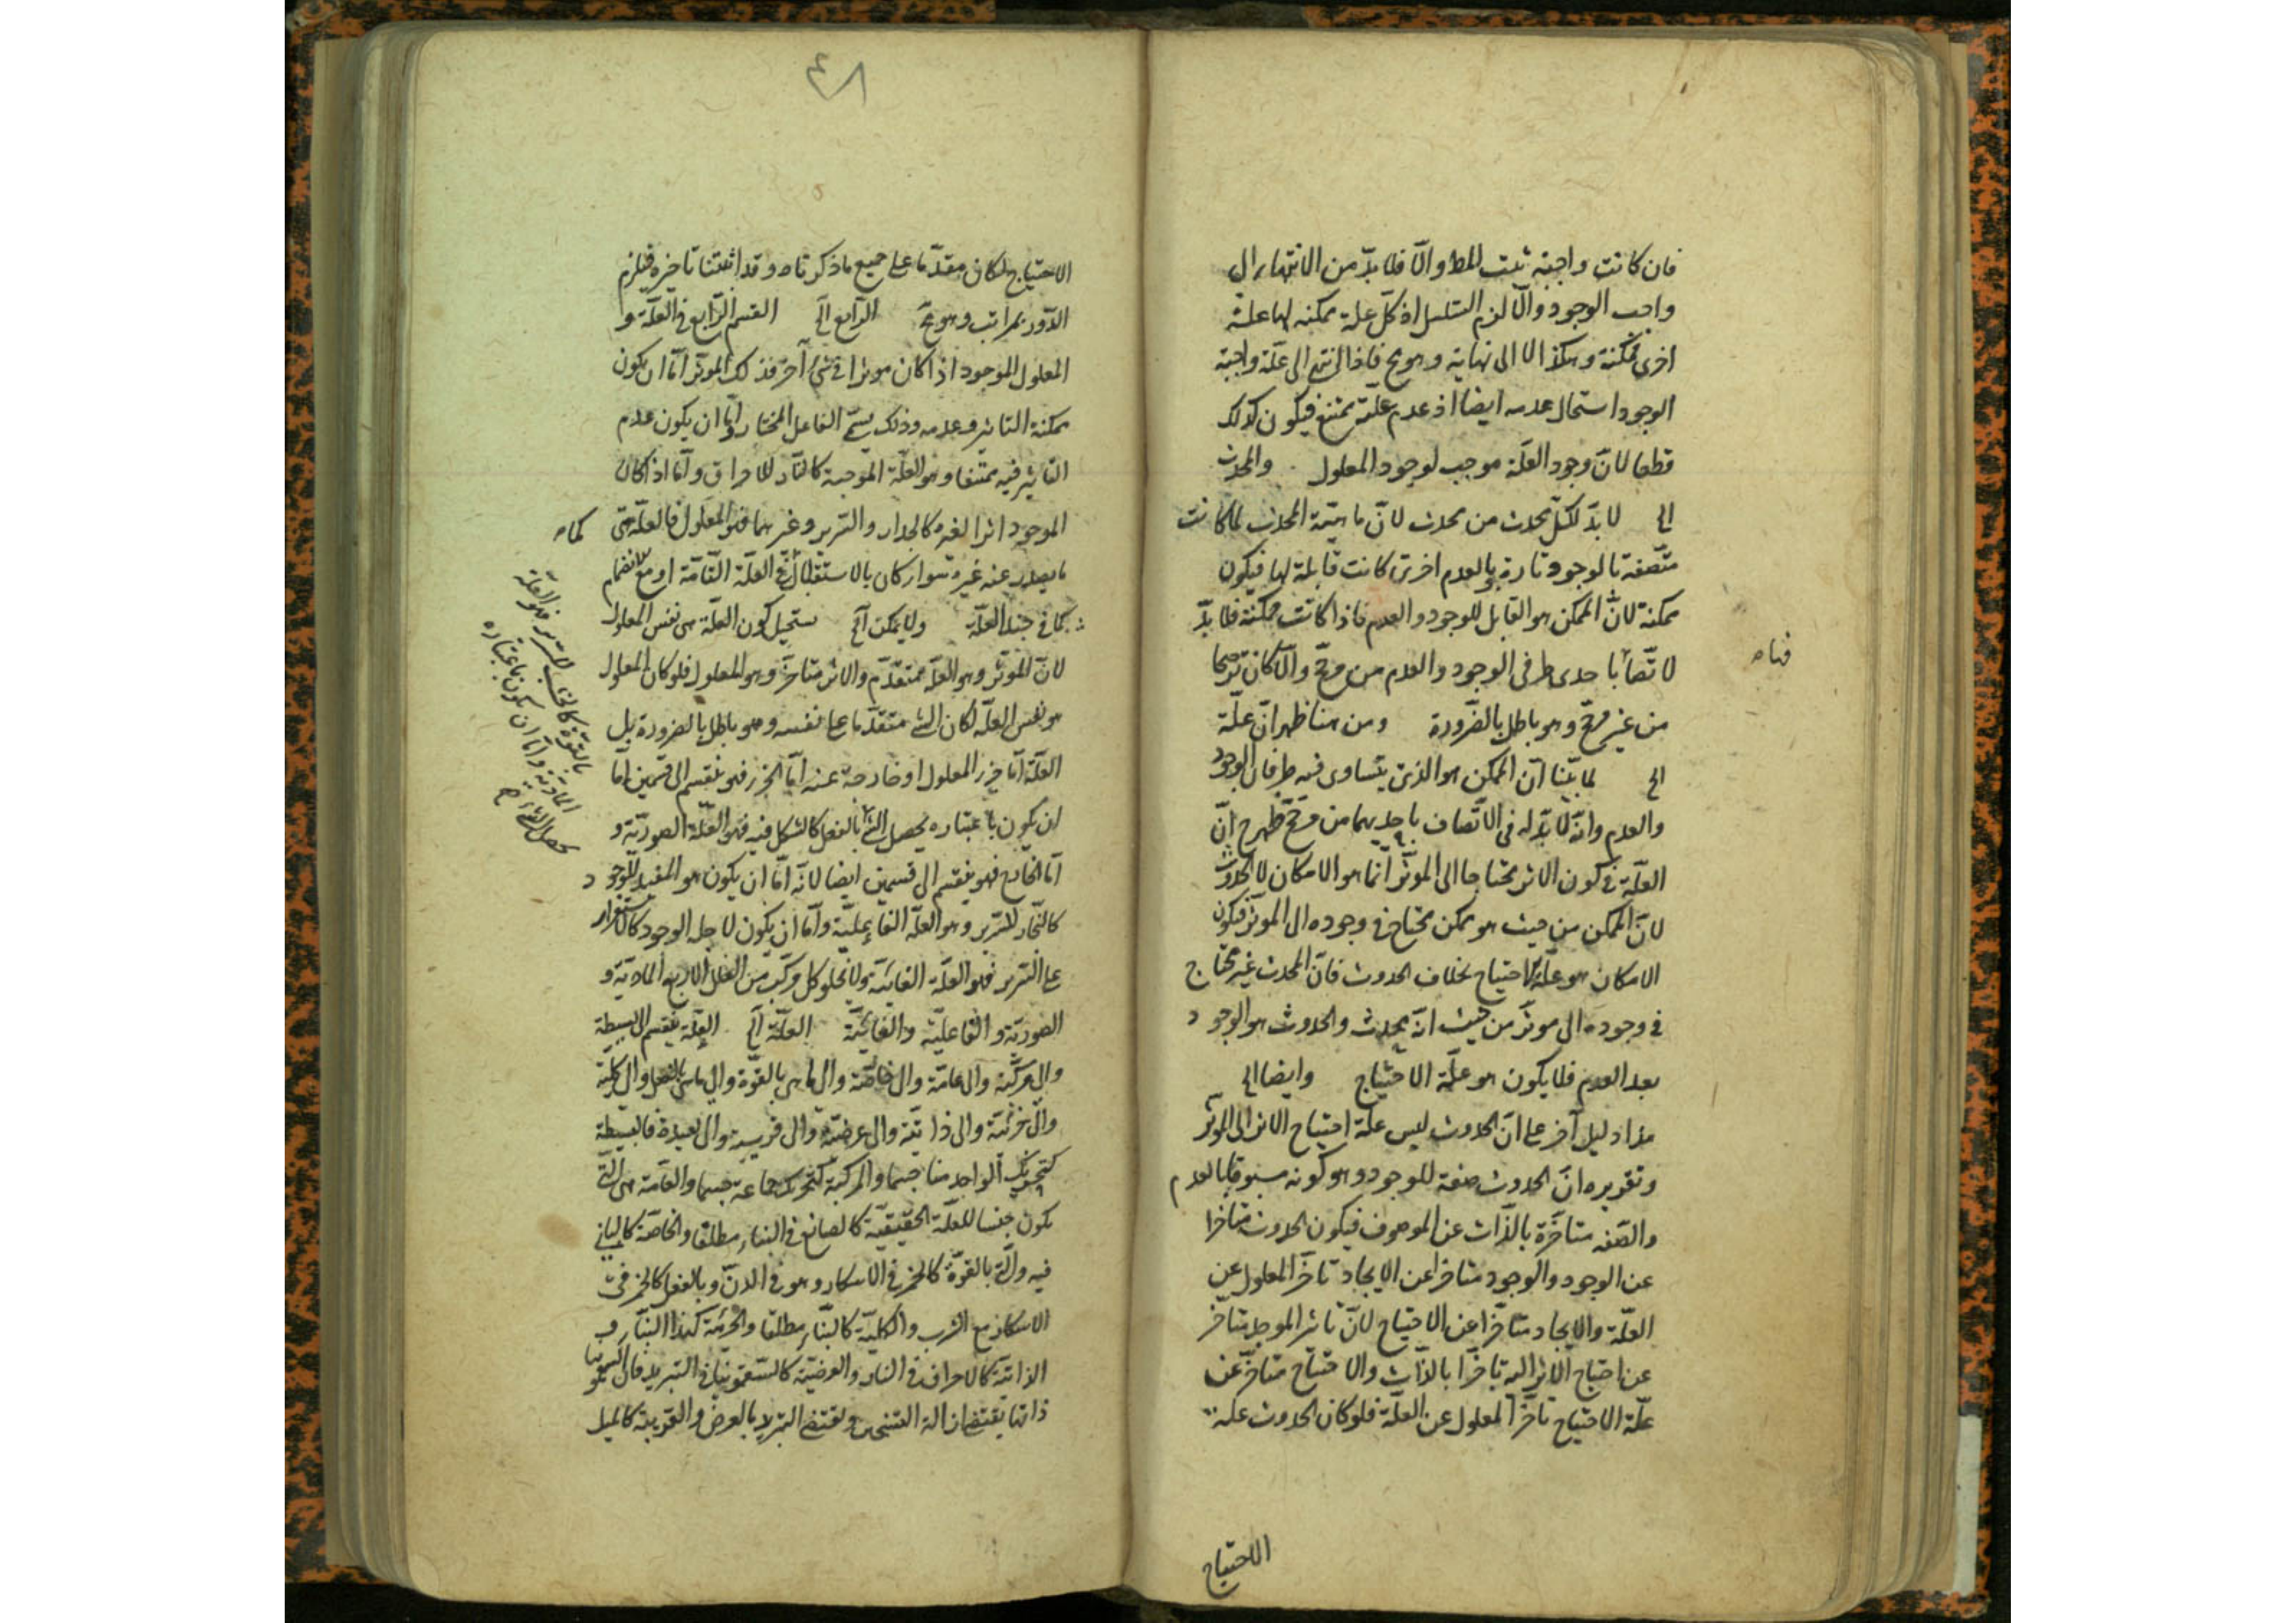 فان كانت واجبة ثبت المط والّا فلا بدّ من الانتهاء الى
واجب الوجود والّا لزم التسلسل اذ كلّ علة ممكنه لها علة
اخرى ممكنة وهكذا لا الى نهاية وهو مح فاذا انتهى الى علّة واجبة
الوجود استحال عدمه ايضا اذ عدم علته ممتنع فيكون كذلك
قطعا لانّ وجود العلّة موجب لوجود المعلول والمحدث
الخ لا بدّ لكل محدث من محدث لانّ ماهيّة المحدث لما كانت
متّصفة بالوجود تارة وبالعدم اخرى كانت قابلة لهما فيكون
ممكنة لانّ الممكن هو القابل للوجود والعدم فاذا كانت ممكنة فلا بدّ
لاتّصافها باحدى طرفى الوجود والعدم من مرجّح والّا كان ترجيحا
من غير مرجّح وهو باطل بالضّرورة ومن هنا ظهر انّ علّة
الخ لما بيّنا انّ الممكن هو الذى يتساوى فيه طرفان الوجود
والعدم وانّه لا بدّ له فى الاتّصاف باحديهما من مرجّح ظهر ح انّ
العلّة فى كون الاثر محتاجا الى الموثّر انّما هو الامكان لا الحدوث
لانّ الممكن من حيث هو ممكن محتاج فى وجوده الى الموثّر فيكون
الامكان هو علّة الاحتياج بخلاف الحدوث فانّ المحدث غير محتاج
فى وجوده الى موثّر من حيث انّه محدث والحدوث هو الوجود
بعد العدم فلا يكون هو علّة الاحتياج وايضا الخ
هذا دليل آخر على انّ الحدوث ليس علّة احتياج الاثر الى الموثّر
وتقريره انّ الحدوث صفة للوجود وهو كونه مسبوقا بالعدم
والصّفه متاخّرة بالذّات عن الموصوف فيكون الحدوث متاخرا
عن الوجود والوجود متاخرا عن الايجاد تاخّر المعلول عن
العلّة والايجاد متاخّرا عن الاحتياج لانّ تاثير الموجد متاخّر
عن احتياج الاثر اليه تاخّرا بالذّات والاحتياج متاخّر عن
علّة الاحتياج تاخّر المعلول عن العلّة فلو كان الحدوث علة
الاحتياج
٤٨
الاحتياج لكان مقدّما على جميع ما ذكرناه وقد اثبتنا تاخيره فيلزم
الدّور بمراتب وهو مح الرّابع الخ القسم الرّابع فى العلّة و
المعلول الموجود اذا كان موثرا فى شئ آخر فذلك الموثّر امّا ان يكون
ممكنة التاثير وعدمه وذلك يسمّى الفاعل المختار وامّا ان يكون عدم
التاثير فيه ممتنعا وهو العلّة الموجبة كالنّار للاحراق وامّا اذا كان
الموجود اثرا لغيره كالجدار والسّرير وغيرهما فهو المعلول فالعلّة هى
ما يصدر عنه غيره سواء كان بالاستقلال فى العلّة التّامّة او مع انضمام
كما فى جزء العلّة ولا يمكن الخ يستحيل كون العلّة هى نفس المعلول
لانّ الموثّر وهو العلّة متقدّم والاثر متاخّر وهو المعلول فلو كان المعلول
هو نفس العلّة لكان الشئ متقدّما على نفسه وهو باطل بالضرورة بل
العلّة امّا جزء المعلول او خارجة عنه امّا الجزء فهو ينقسم الى قسمين امّا
ان يكون باعتباره يحصل الشئ بالفعل كالشكل فيه فهو العلّة الصوريّة و
امّا الخارج فهو ينقسم الى قسمين ايضا لانّه امّا ان يكون هو المفيد للوجود
كالنّجار للسّرير وهو العلّة الفاعليّة وامّا ان يكون لاجله الوجود كالاستقرار
على السّرير فهو العلّة الغائيّة ولا يخلو كل مركّب من العلل الاربع الماديّة و
الصوريّة والفاعليّة والغائيّة العلّة الخ العلّة ينقسم الى بسيطة
والى مركّبة والى عامّة والى خاصّة والى ما هى بالقوّة والى ما هى بالفعل والى كليّة
والى جزئيّة والى ذاتيّة والى عرضيّة والى قريبة والى بعيدة فالبسيطة
كتحريك الواحد منا جسما والمركبة كتحريك جماعة جسما والعامّة هى الّتى
يكون جنسا للعلّة الحقيقيّة كالصانع فى البناء مطلقا والخاصّة كالبانى
فيه والّتى بالقوّة كالخمر فى الاسكار وهو فى الدنّ وبالفعل كالخمر فى
الاسكار مع الشرب والكليّة كالبنّاء مطلقا والجزئية كهذا البنّاء و
الذاتيّة كالاحراق فى النار والعرضيّة كالسّقمونيا فى التبريد فان السقمونيا
ذاتها يقتضى ازالة التسخين ويقتضى التبريد بالعرض والقريبة كالميل
بالقوّة كالخشب للسّرير فهو العلّة
الماديّة وامّا ان يكون باعتباره
يحصل الشئ ح